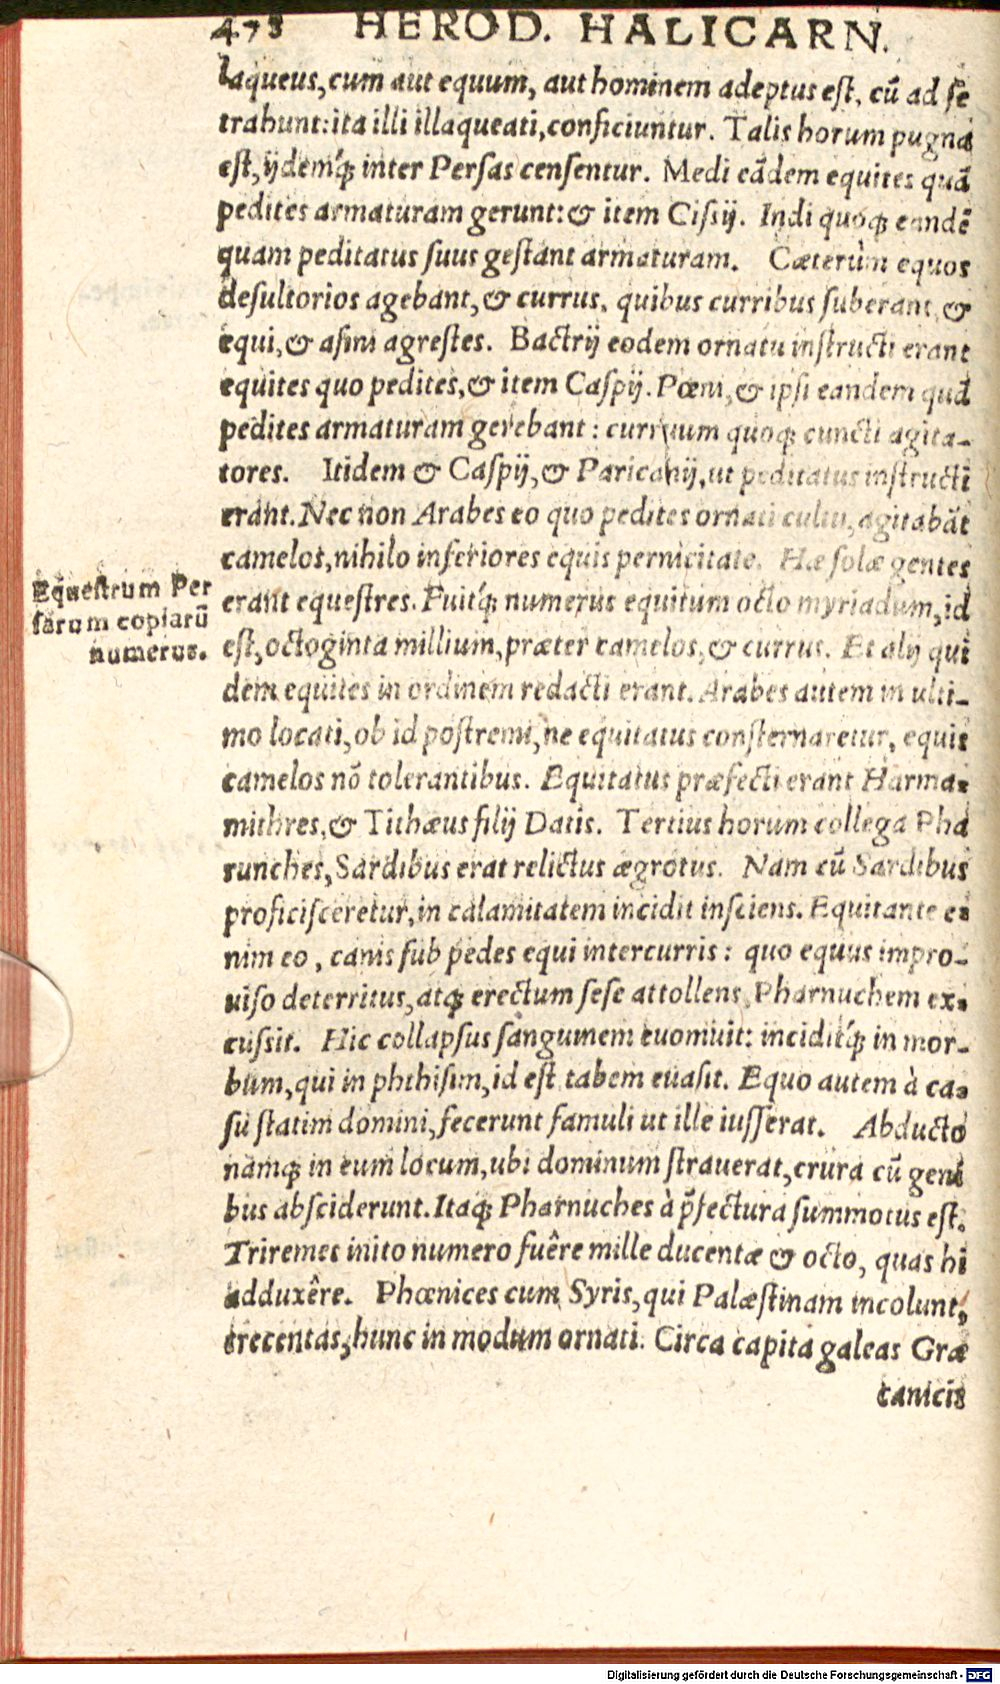 478 HEROD. HALICARN.
laqueus, cum aut equum, aut hominem adeptus est, cū ad se
trahunt: ita illi illaqueati, conficiuntur. Talis horum pugna
est, ijdemq́; inter Persas censentur. Medi eādem equites quā
pedites armaturam gerunt: & item Cissij. Indi quoq; eandē
quam peditatus suus gestant armaturam. Cæterùm equos
desultorios agebant, & currus, quibus curribus suberant, &
equi, & asini agrestes. Bactrij eodem ornatu instructi erant
equites quo pedites, & item Caspij. Pœni, & ipsi eandem quā
pedites armaturam gerebant: curruum quoq; cuncti agita-
tores. Itidem & Caspij, & Paricanij, ut peditatus instructi
erant. Nec non Arabes eo quo pedites ornati cultu, agitabāt
camelos, nihilo inferiores equis pernicitate. Hæ solæ gentes
erant equestres. Fuitq́; numerus equitum octo myriadum, id
est, octoginta millium, præter camelos, & currus. Et alij qui
dem equites in ordinem redacti erant. Arabes autem in ulti-
mo locati, ob id postremi, ne equitatus consternaretur, equis
camelos nō tolerantibus. Equitatus præfecti erant Harma-
mithres, & Tithæus filij Datis. Tertius horum collega Pha
runches, Sardibus erat relictus ægrotus. Nam cū Sardibus
proficisceretur, in calamitatem incidit insciens. Equitante e-
nim eo, canis sub pedes equi intercurris: quo equus impro-
uiso deterritus, atq; erectum sese attollens, Pharnuchem ex-
cussit. Hic collapsus sanguinem euomuit: inciditq́; in mor-
bum, qui in phthisim, id est tabem euasit. Equo autem à ca-
su statim domini, fecerunt famuli ut ille iusserat. Abducto
namq; in eum locum, ubi dominum strauerat, crura cū geni
bus absciderunt. Itaq; Pharnuches à p̄fectura summotus est.
Triremes inito numero fuêre mille ducentæ & octo, quas hi
adduxêre. Phœnices cum Syris, qui Palæstinam incolunt,
trecentas, hunc in modum ornati. Circa capita galeas Græ
canicis
Equestrum Per
sarum copiarū
numerus.
Digitalisierung gefördert durch die Deutsche Forschungsgemeinschaft - DFG